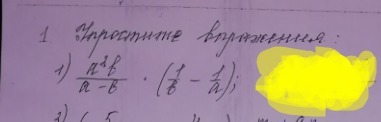 1 Упростите выражения:
1) a²b/(a-b) · (1/b - 1/a);